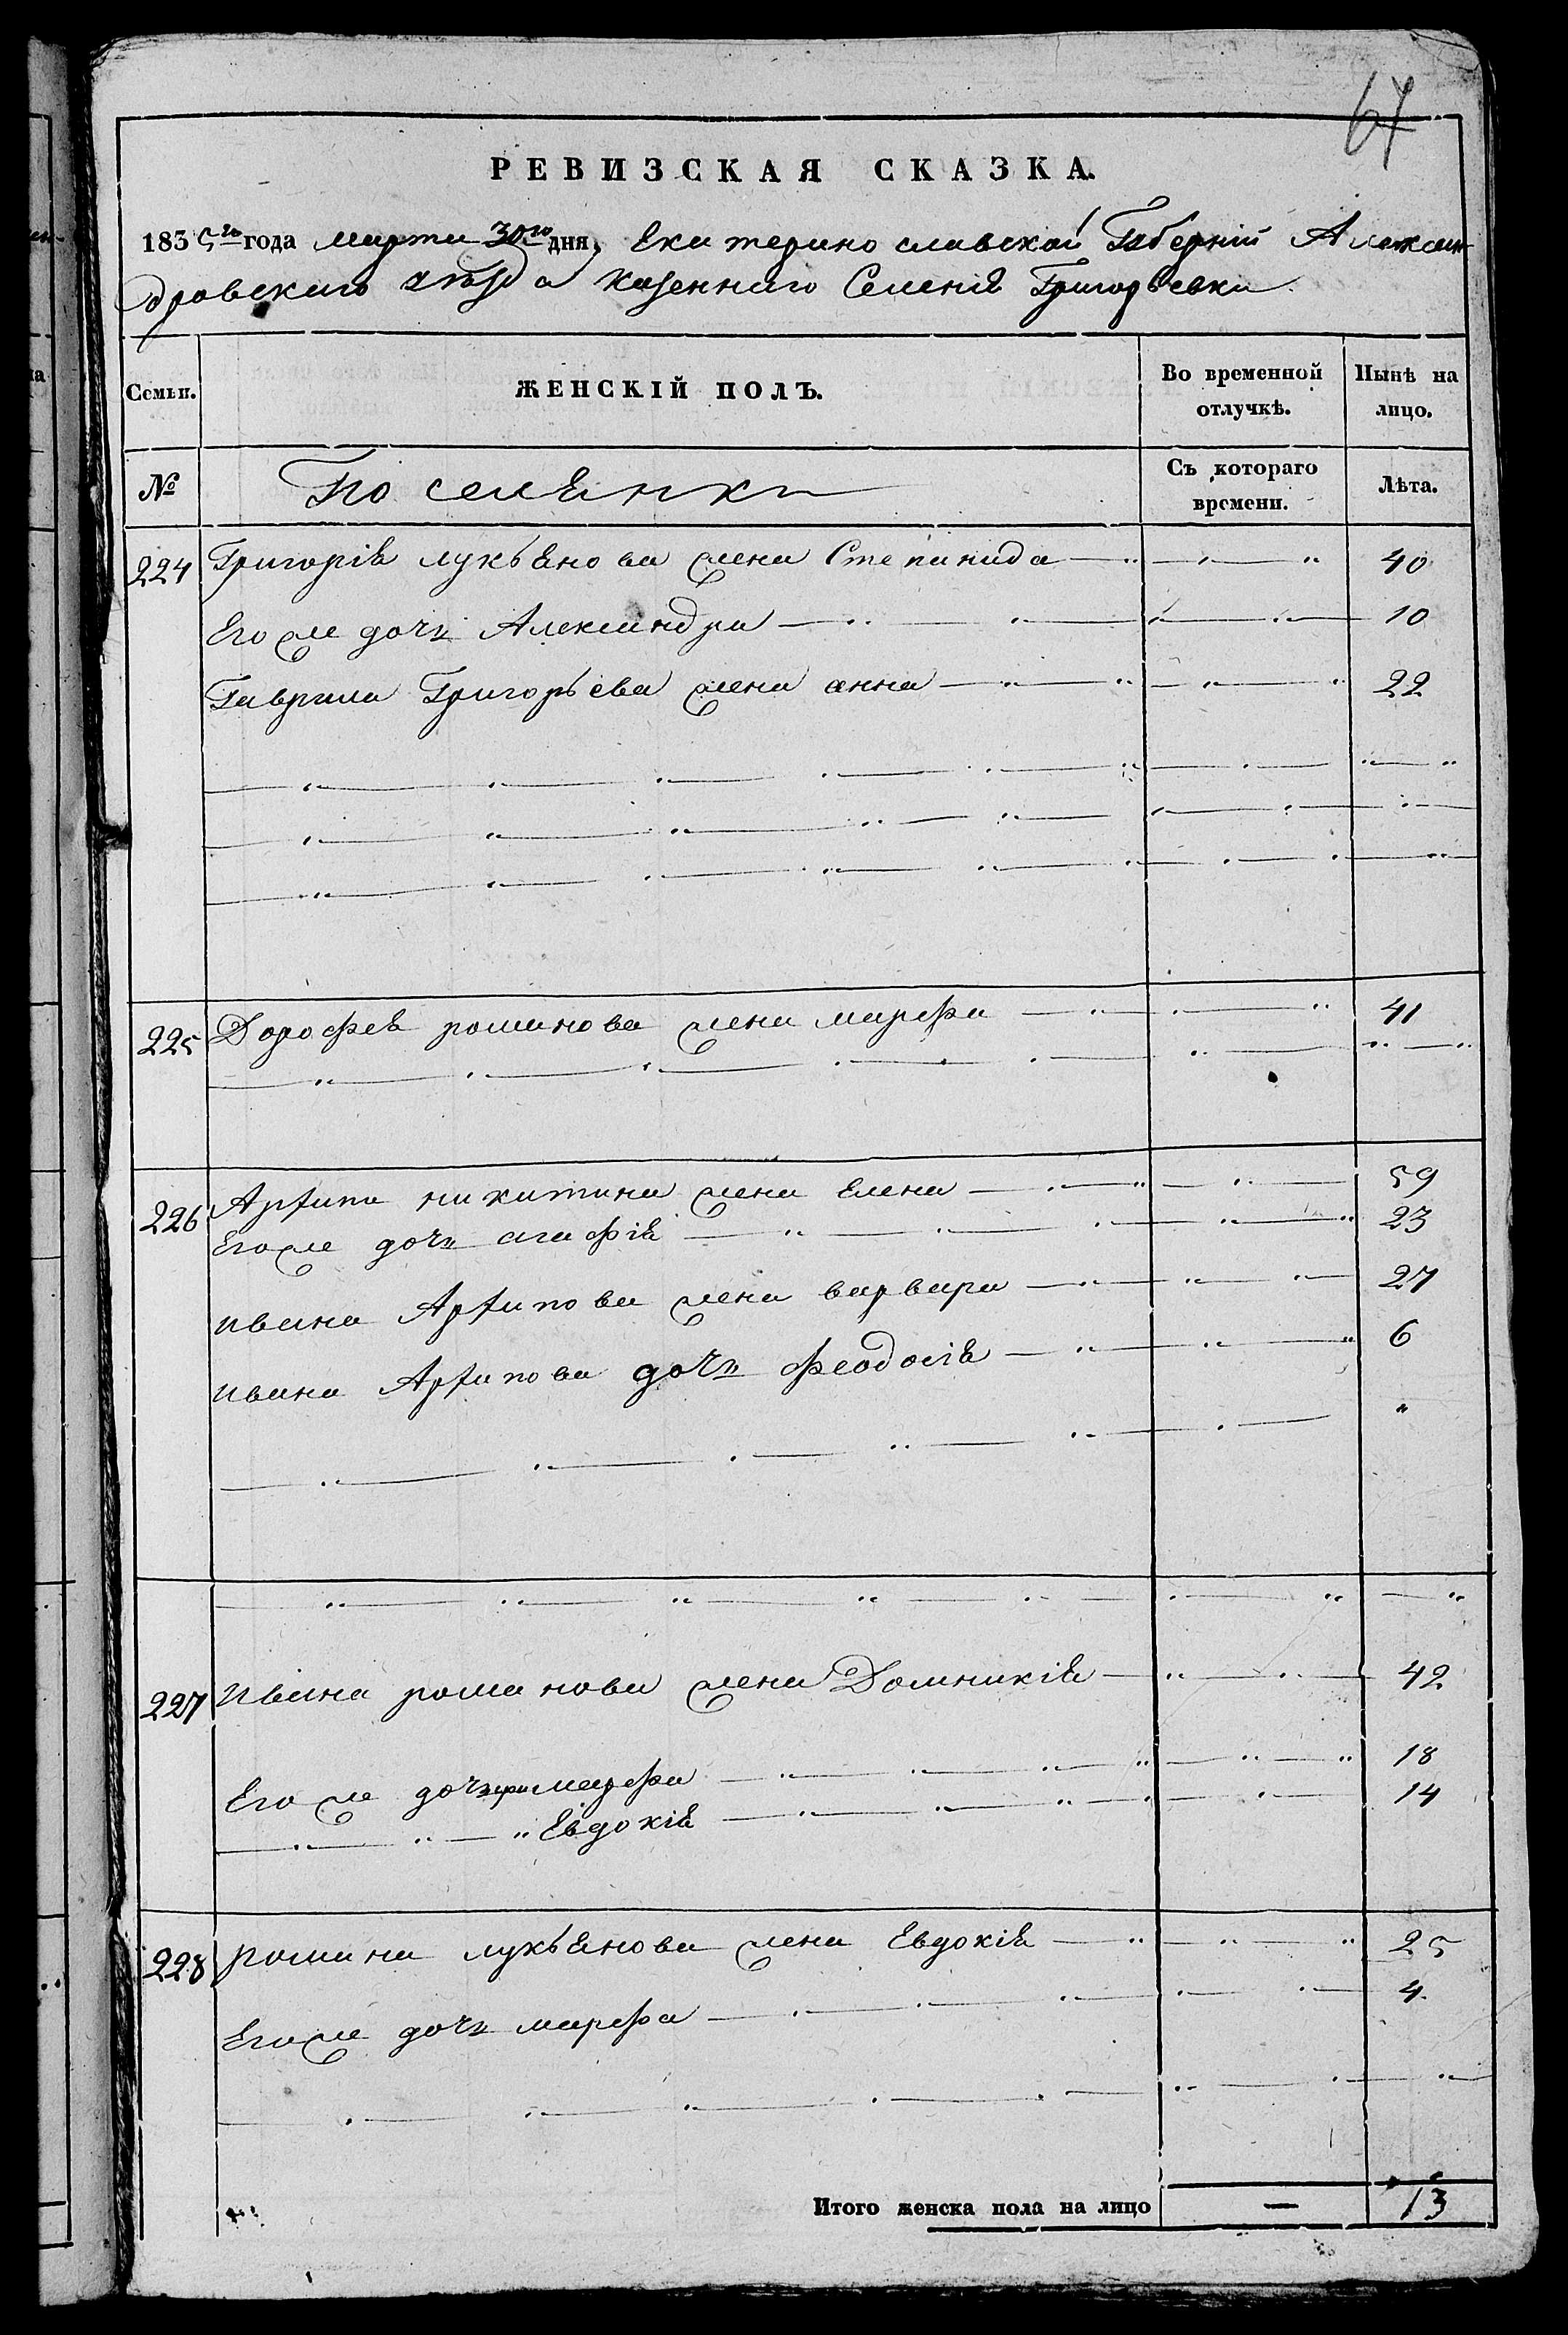 67
РЕВИЗСКАЯ СКАЗКА.
1835го года марта 30го дня, Екатеринославской Губернїи Алексан
дровскаго уѣзда казеннаго Селенія Григорьевки
Семьи. ЖЕНСКІЙ ПОЛЪ. Во временной отлучкѣ. Нынѣ на лицо.
№ Поселянки Съ котораго времени. Лѣта.
224 Григорія лукьянова жена Степанида 40
Его же дочь Александра 10
Гаврила Григорьева жена анна 22
225 Дорофея романова жена марфа 41
226 Архипа никитина жена Елена 59
Его же дочь агафія 23
ивана Архипова жена варвара 27
ивана Архипова дочь феодосія 6
227 ивана романова жена Домникія 42
Его же дочери марфа 18
" Евдокія 14
228 романа лукьянова жена Евдокія 25
Его же дочь марфа 4
Итого женска пола на лицо — 13